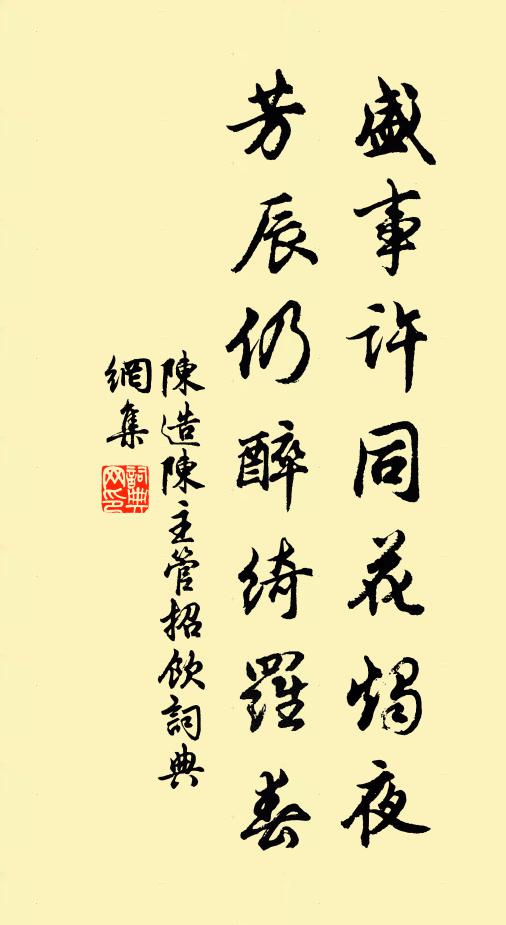 盛事許同花燭夜
芳辰仍醉綺羅春
陳造陳主管招飲詞典
網集
詞典
网印